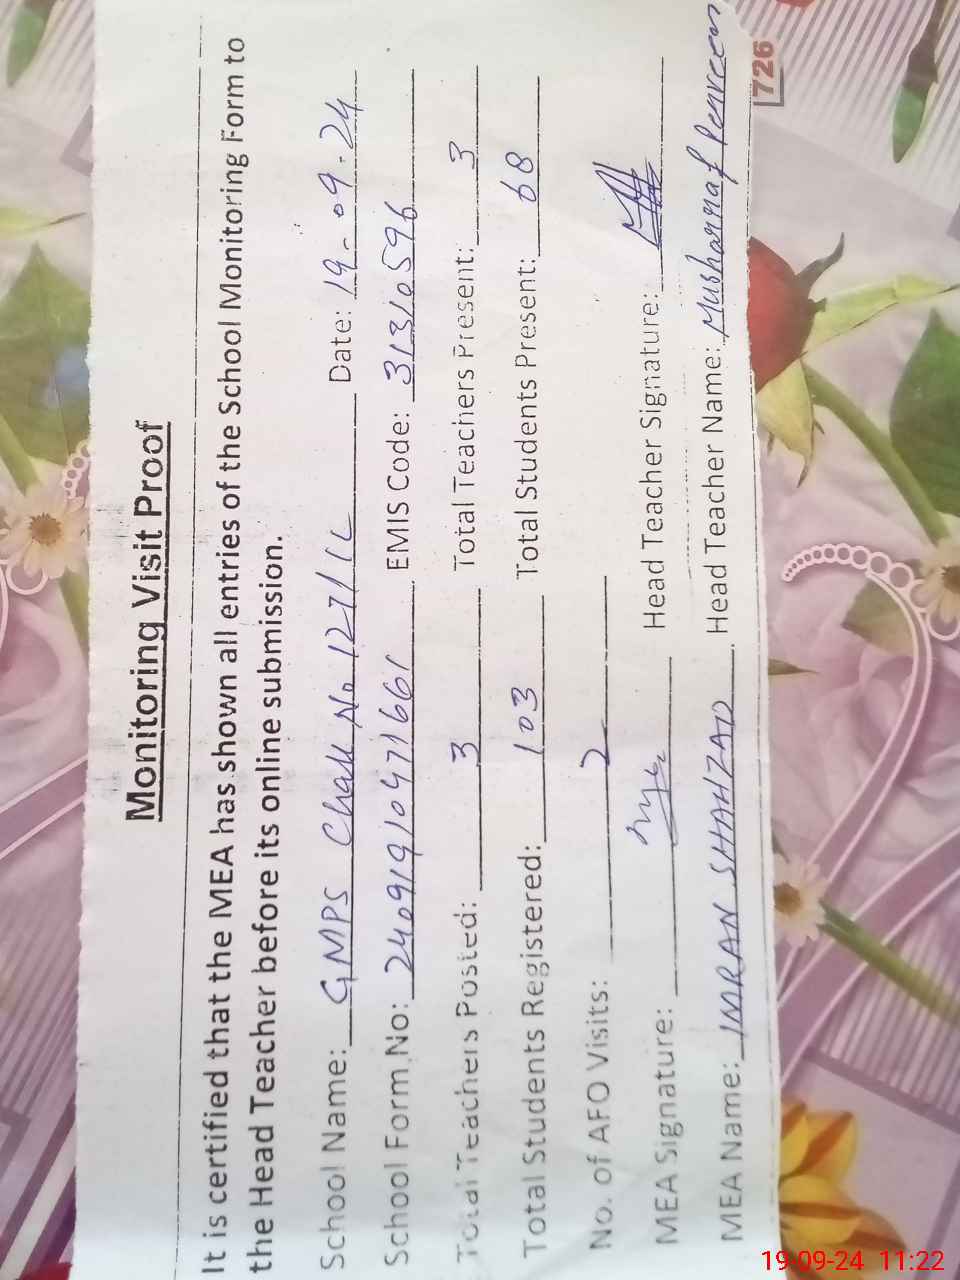 Monitoring Visit Proof
It is certified that the MEA has shown all entries of the School Monitoring Form to
the Head Teacher before its online submission.
School Name: GMPS Chak No 127/1L Date: 19-09-24
School Form No: 240919104711661 EMIS Code: 31310596
Total Teachers Posted: 3 Total Teachers Present: 3
Total Students Registered: 103 Total Students Present: 68
No. of AFO Visits: 2
MEA Signature: Head Teacher Signature:
MEA Name: IMRAN SHAHZAD Head Teacher Name: Musharraf Perveen
726
19-09-24 11:22